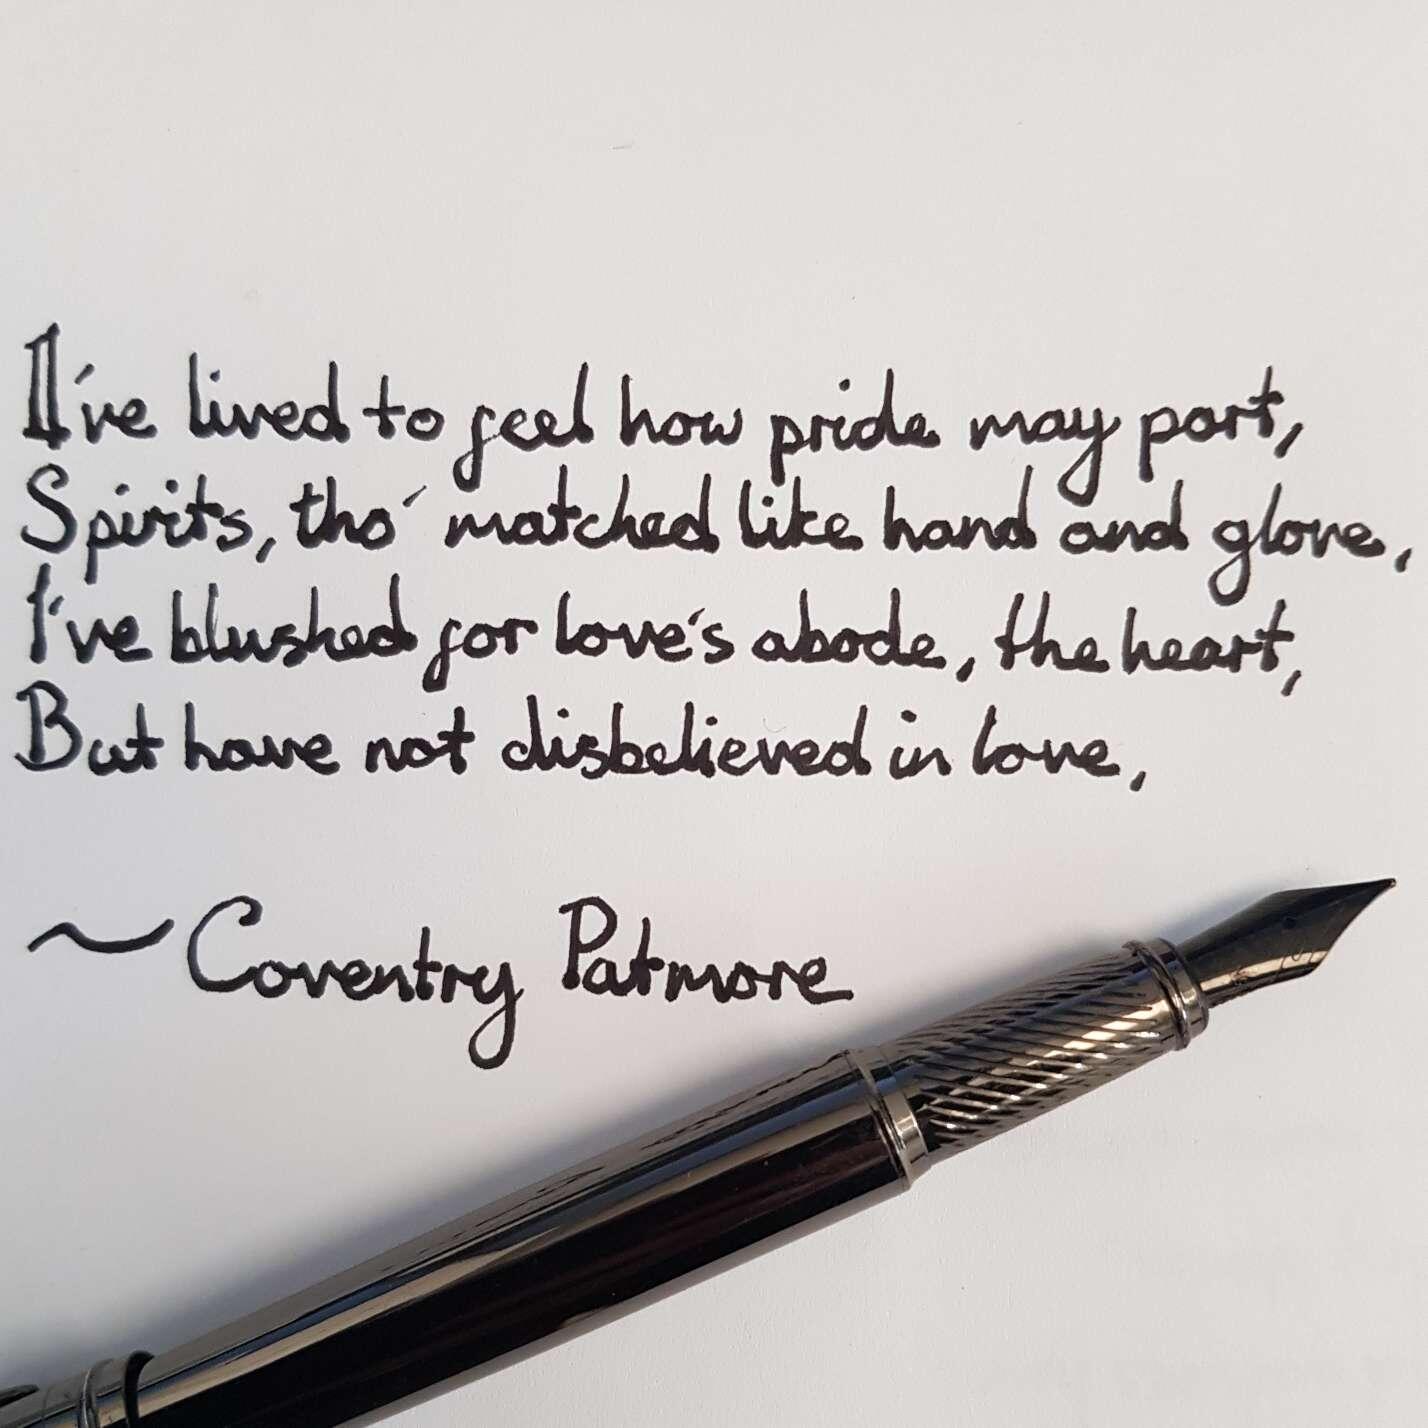 I've lived to feel how pride may part,
Spirits, tho' matched like hand and glove,
I've blushed for love's abode, the heart,
But have not disbelieved in love,
~ Coventry Patmore